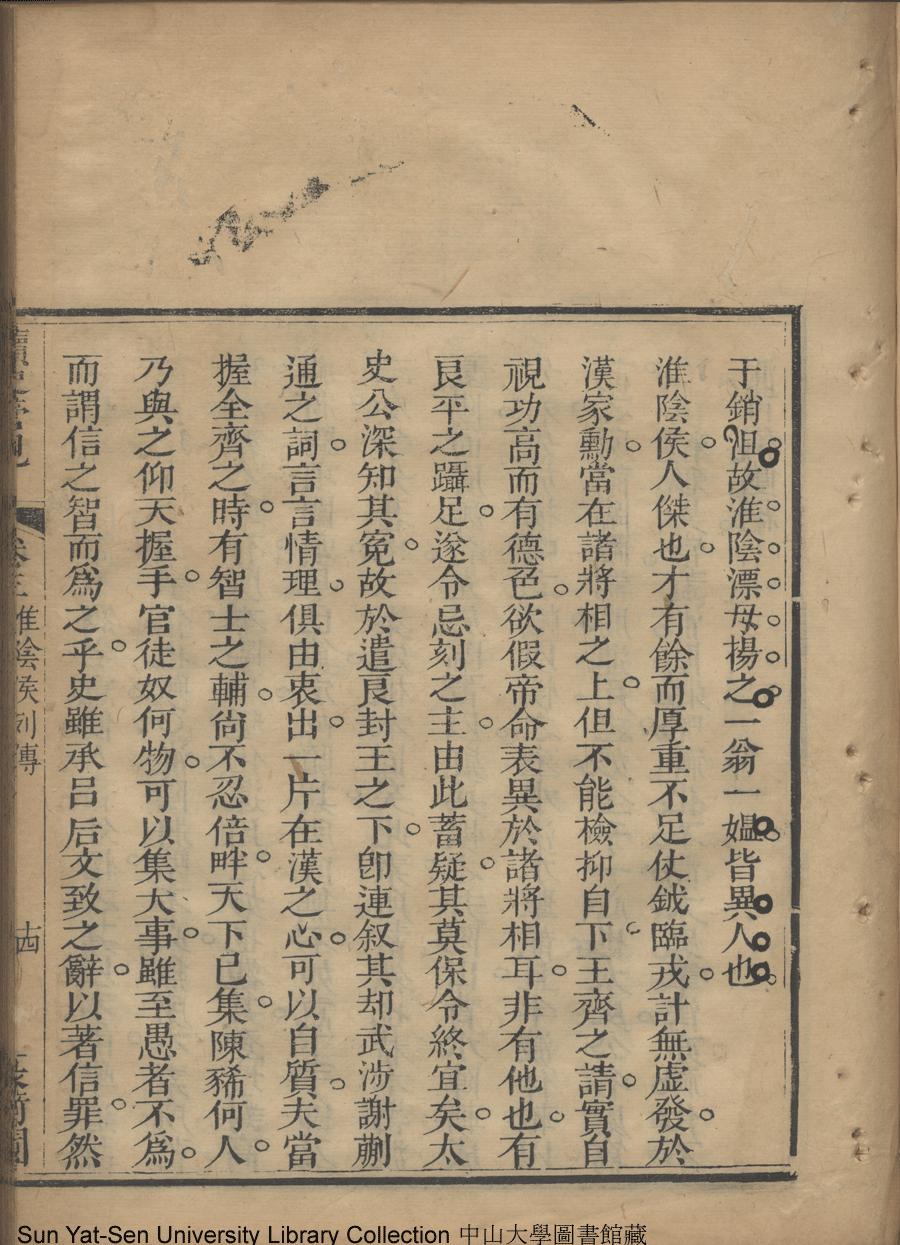 于銷沮故淮陰漂母揚之一翁一媪皆異人也
淮陰侯人傑也才有餘而厚重不足仗鉞臨戎計無虛發於
漢家勳當在諸將相之上但不能檢抑自下王齊之請實自
視功高而有德色欲假帝命表異於諸將相耳非有他也有
良平之躡足遂令忌刻之主由此蓄疑其莫保令終宜矣太
史公深知其寃故於遣良封王之下卽連叙其却武涉謝蒯
通之詞言言情理俱由衷出一片在漢之心可以自質夫當
握全齊之時有智士之輔尙不忍倍畔天下已集陳豨何人
乃與之仰天握手官徒奴何物可以集大事雖至愚者不爲
而謂信之智而爲之乎史雖承呂后文致之辭以著信罪然
卷三 淮陰侯列傳
十四
Sun Yat-Sen University Library Collection 中山大學圖書館藏